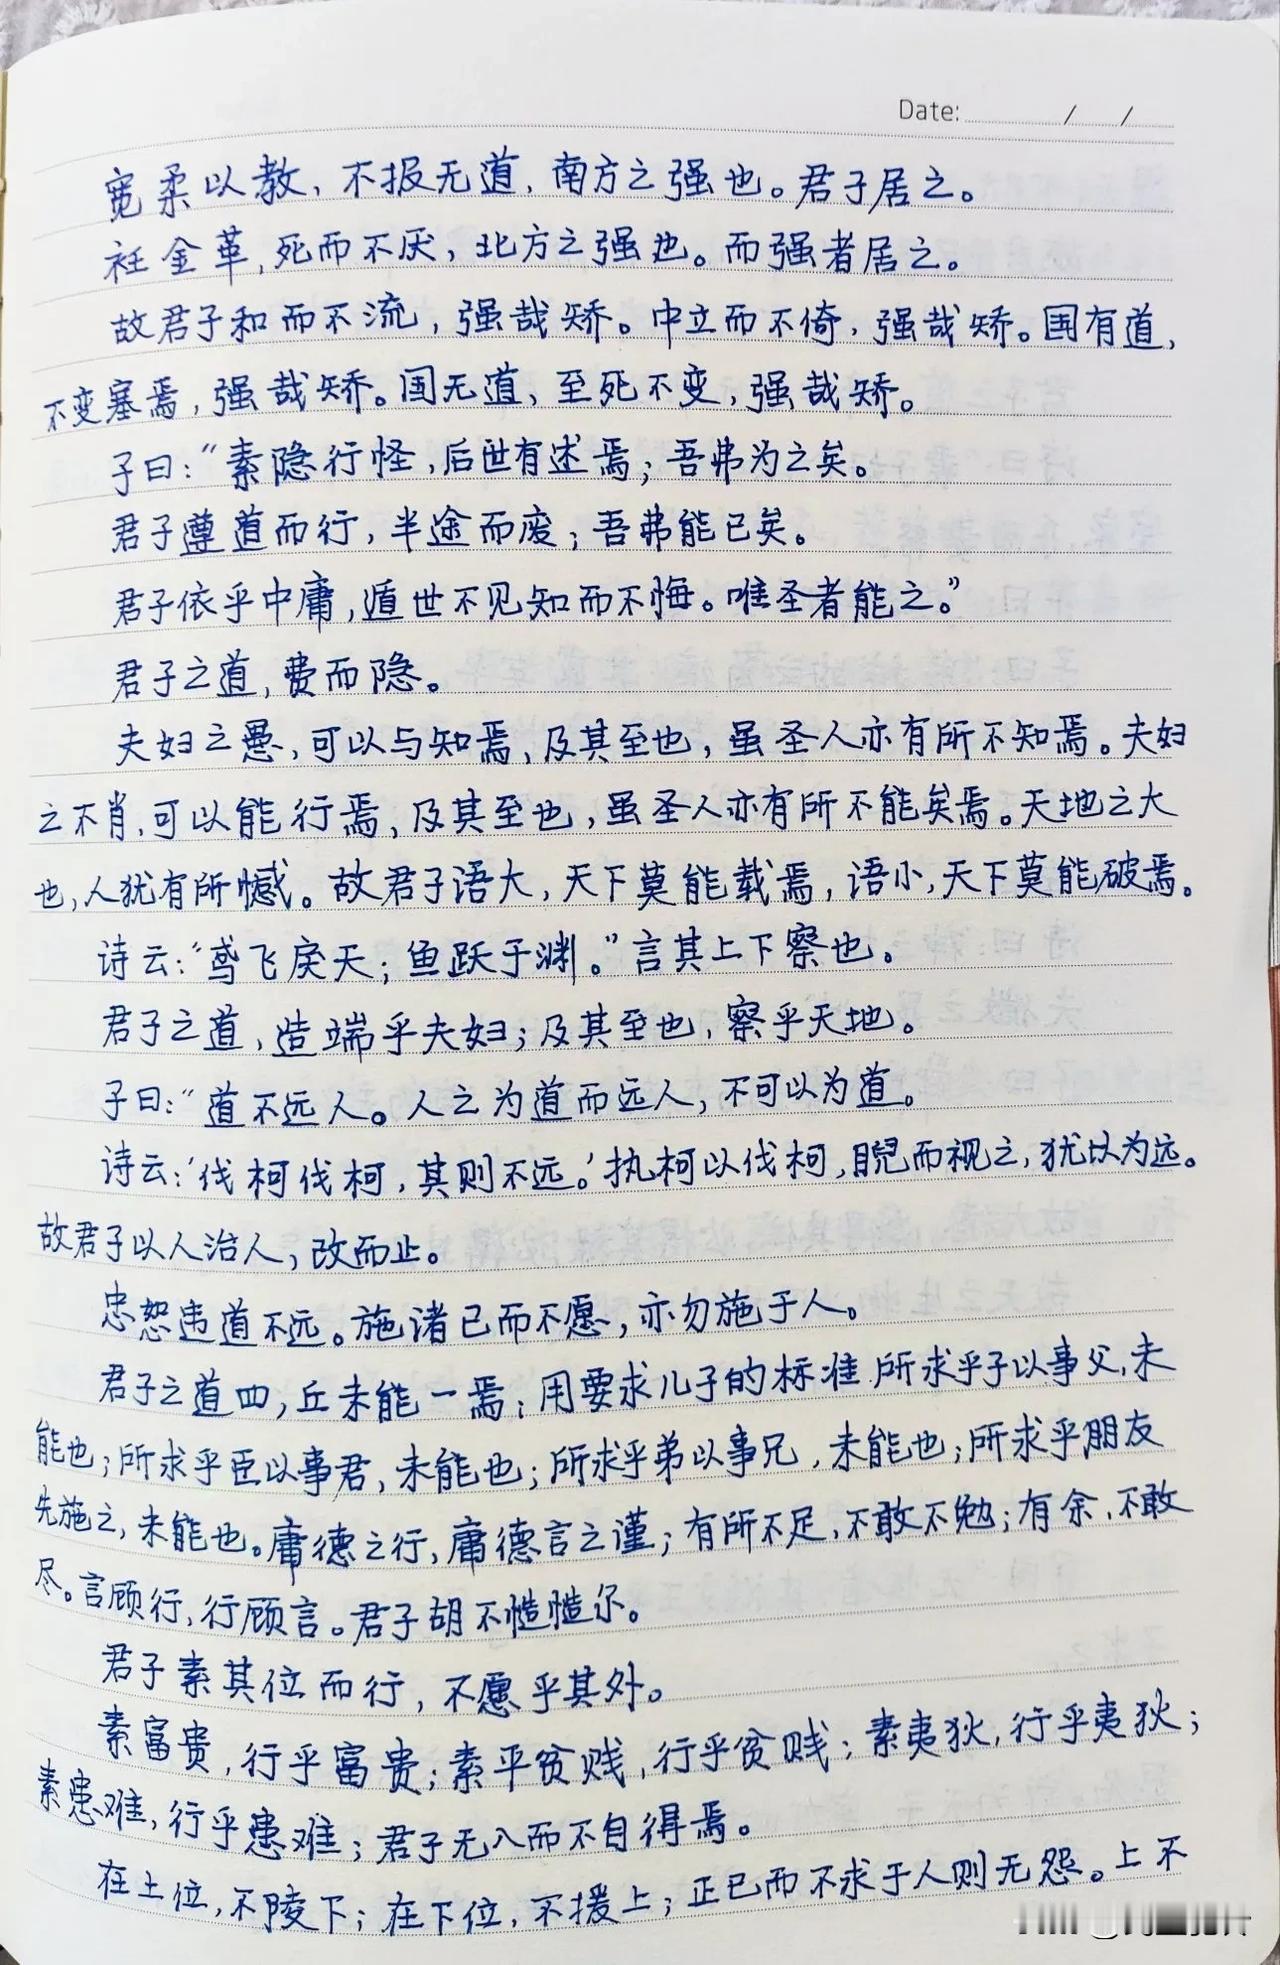 Date: / /
宽柔以教，不报无道，南方之强也。君子居之。
衽金革，死而不厌，北方之强也。而强者居之。
故君子和而不流，强哉矫。中立而不倚，强哉矫。国有道，
不变塞焉，强哉矫。国无道，至死不变，强哉矫。
子曰：“素隐行怪，后世有述焉；吾弗为之矣。
君子遵道而行，半途而废；吾弗能已矣。
君子依乎中庸，遁世不见知而不悔。唯圣者能之。”
君子之道，费而隐。
夫妇之愚，可以与知焉，及其至也，虽圣人亦有所不知焉。夫妇
之不肖，可以能行焉，及其至也，虽圣人亦有所不能矣焉。天地之大
也，人犹有所憾。故君子语大，天下莫能载焉，语小，天下莫能破焉。
诗云：“鸢飞戾天；鱼跃于渊。”言其上下察也。
君子之道，造端乎夫妇；及其至也，察乎天地。
子曰：“道不远人。人之为道而远人，不可以为道。
诗云：‘伐柯伐柯，其则不远。’执柯以伐柯，睨而视之，犹以为远。
故君子以人治人，改而止。
忠恕违道不远。施诸己而不愿，亦勿施于人。
君子之道四，丘未能一焉；用要求儿子的标准 所求乎子以事父，未
能也；所求乎臣以事君，未能也；所求乎弟以事兄，未能也；所求乎朋友
先施之，未能也。庸德之行，庸德言之谨；有所不足，不敢不勉；有余，不敢
尽。言顾行，行顾言。君子胡不慥慥尔。
君子素其位而行，不愿乎其外。
素富贵，行乎富贵；素平贫贱，行乎贫贱；素夷狄，行乎夷狄；
素患难，行乎患难；君子无入而不自得焉。
在上位，不陵下；在下位，不援上；正已而不求于人则无怨。上不